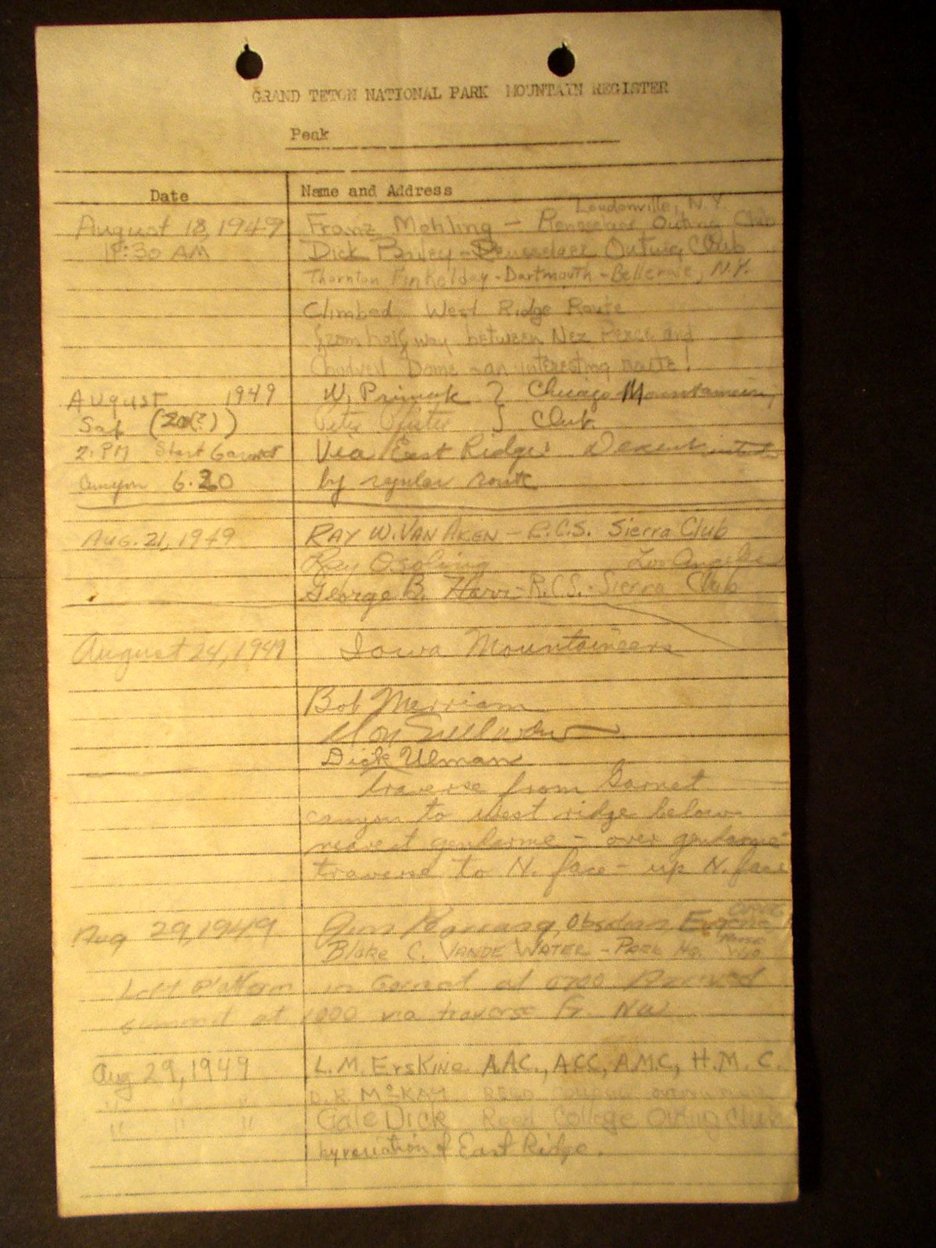 GRAND TETON NATIONAL PARK MOUNTAIN REGISTER
Peak
Date Name and Address
Loudonville, N.Y.
August 18, 1949 Franz Mohling - Rensselaer Outing Club
:30 AM Dick Bailey - Rensselaer Outing Club
Thornton - Dartmouth - Bellerose, N.Y.
Climbed West Ridge Route
from half way between Nez Perce and
Cloudveil Dome - an interesting route!
August 1949 W. Primak } Chicago Mountaineering
Sat (20(?)) Pete Club
2:PM Start Garnet Via East Ridge Descent
Canyon 6:20 by regular route
Aug. 21, 1949 RAY W. VAN AKEN - R.C.S. Sierra Club
Ray Los Angeles
George B. Harr - R.C.S. - Sierra Club
August 24, 1949 Iowa Mountaineers
Bob Merriam
Dick Ulman
traverse from Garnet
canyon to west ridge below
nearest gendarme - over gendarme
traverse to N. face - up N. face
Aug 29, 1949 , Obsidian
Blake C. VANDE WATER - PARK HQ.
Left Platform in Garnet at 0700 Reached
summit at 1000 via traverse Fr. NW
Aug 29, 1949 L.M. Erskine AAC., ACC, A.M.C, H.M.C.
" " " D.R. McKAY REED COLLEGE
" " " Gale Dick Reed College Outing Club
by variation of East Ridge.